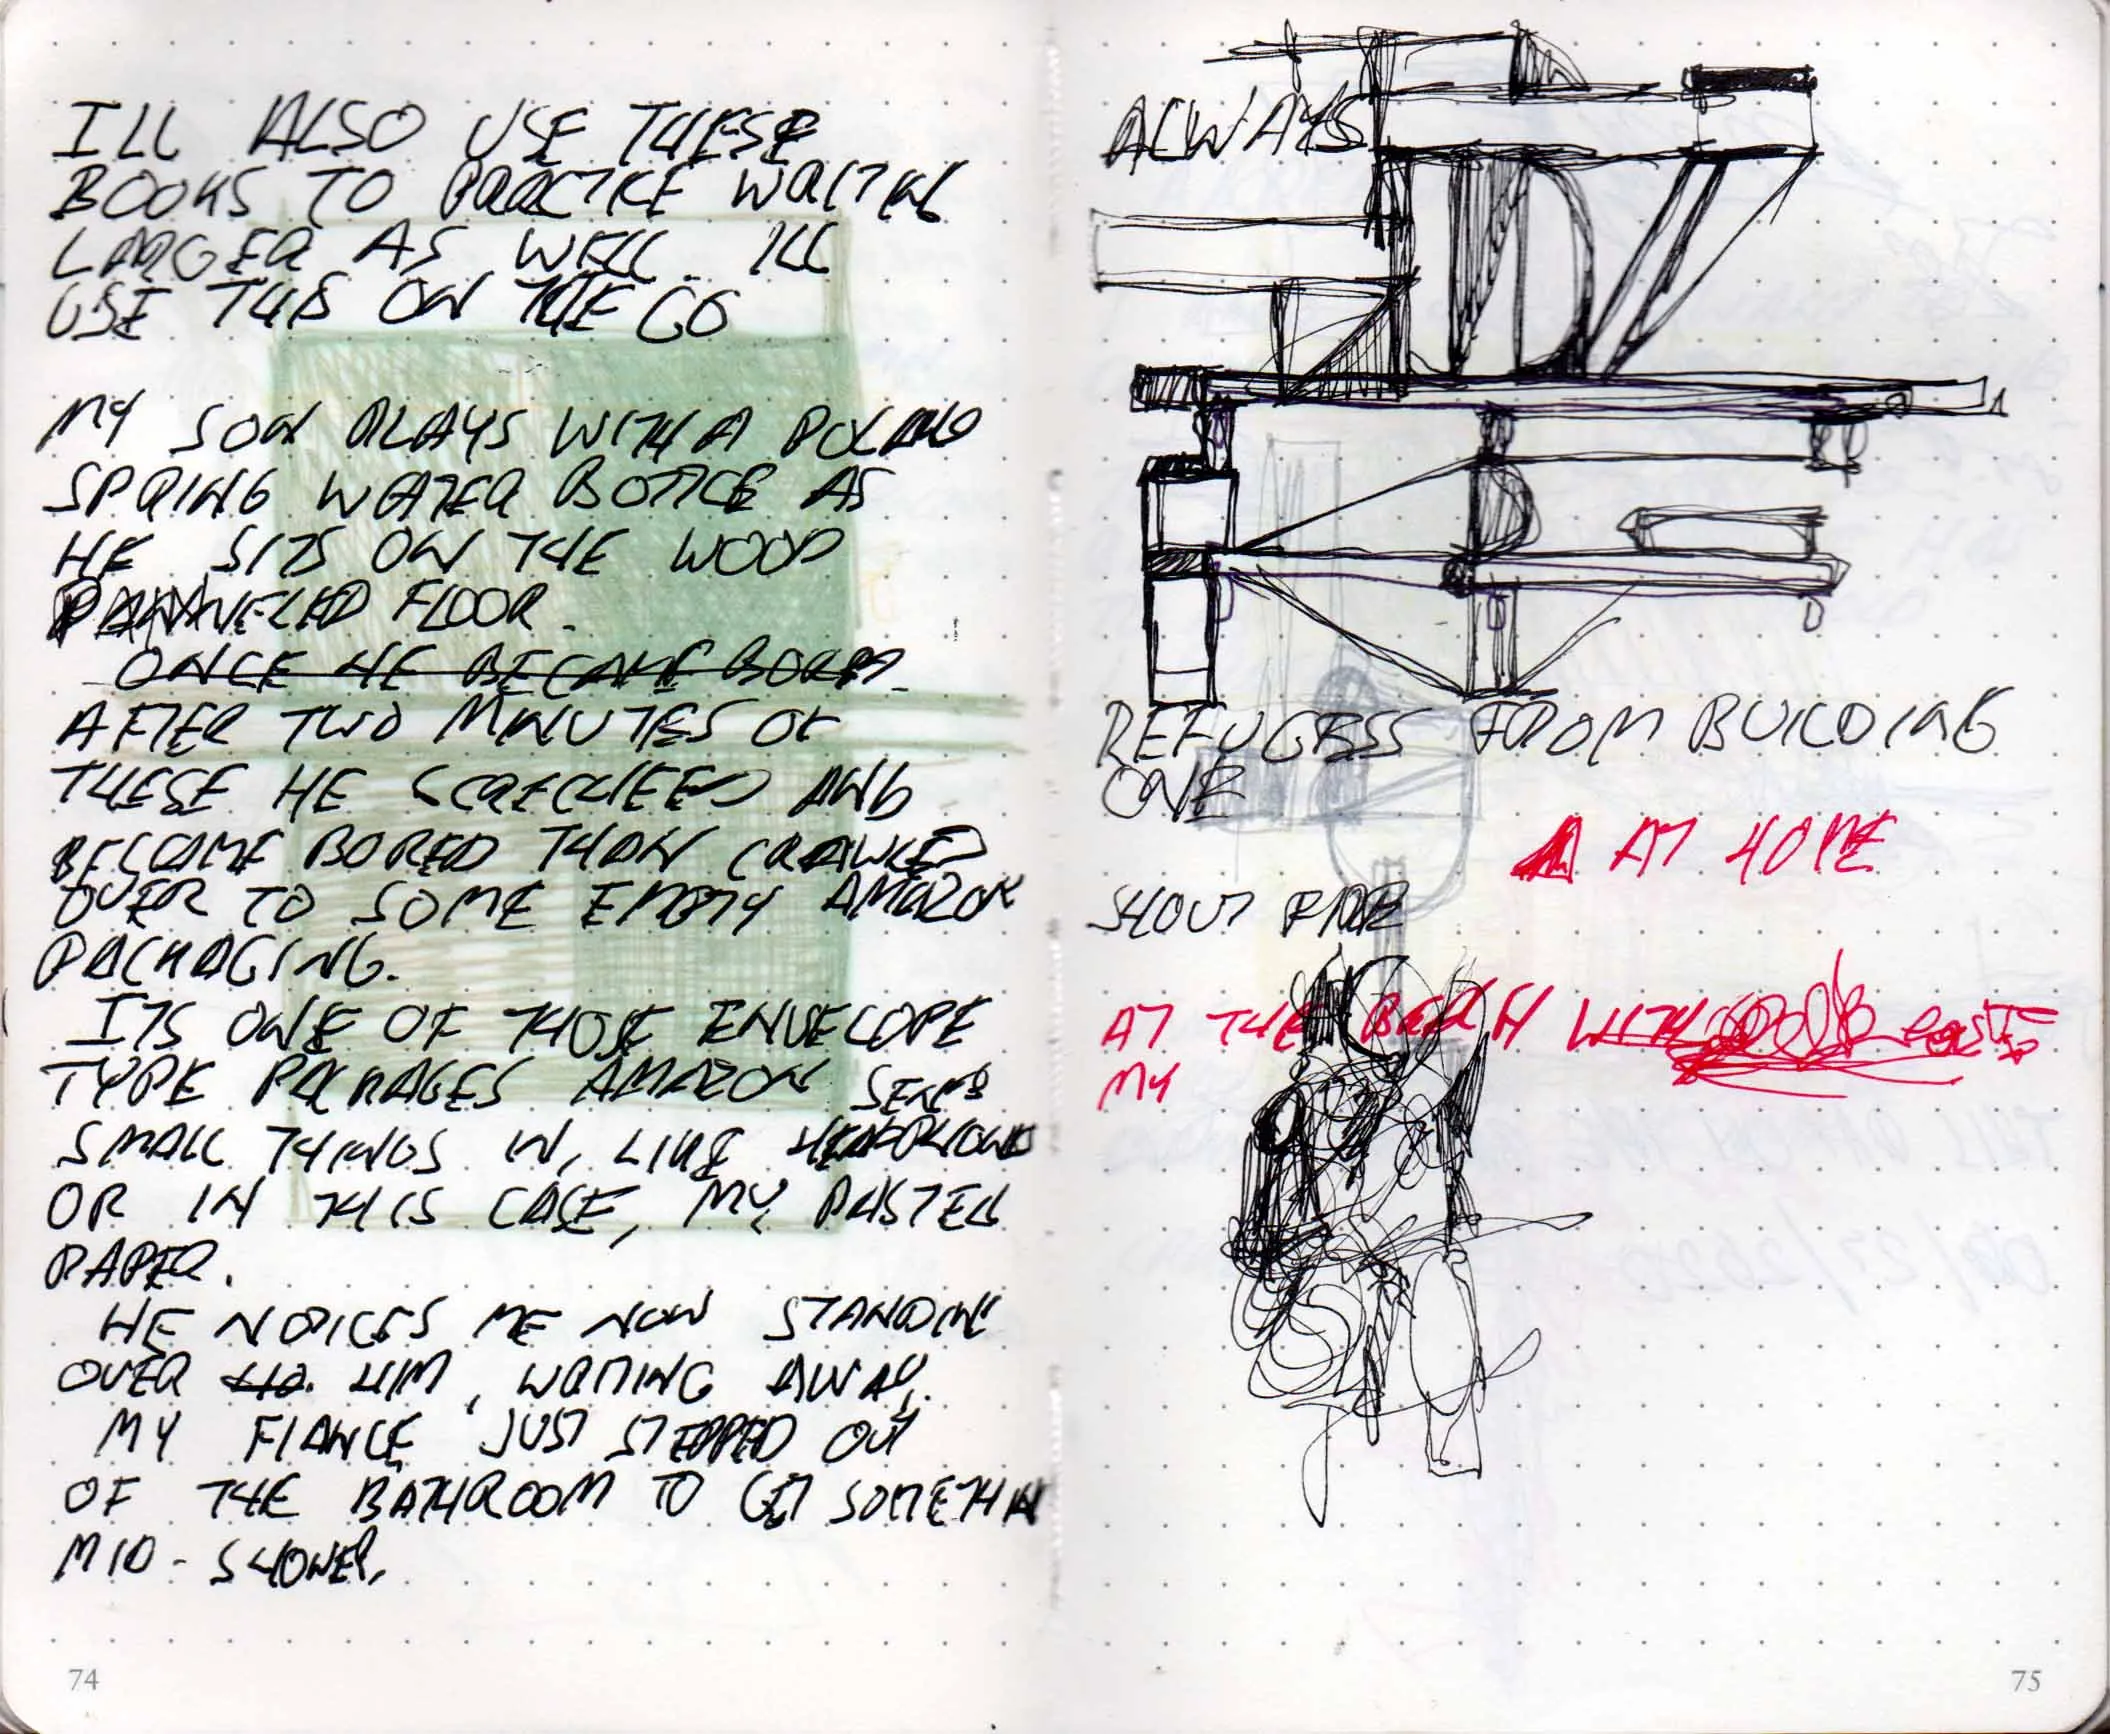 ILL ALSO USE THESE
BOOKS TO PRACTICE WRITING
LARGER AS WELL. ILL
USE THIS ON THE GO
MY SON PLAYS WITH A POLAND
SPRING WATER BOTTLE AS
HE SITS ON THE WOOD
PANNELED FLOOR.
ONCE HE BECAME BORED.
AFTER TWO MINUTES OF
THESE HE SCREECHED AND
BECOME BORED THAN CRAWLED
OVER TO SOME EMPTY AMAZON
PACKAGING.
ITS ONE OF THOSE ENVELOPE
TYPE PACKAGES AMAZON SENDS
SMALL THINGS IN, LIKE HEADPHONES
OR IN THIS CASE, MY PASTEL
PAPER.
HE NOTICES ME NOW STANDING
OVER HIM, WRITING AWAY.
MY FIANCE JUST STEPPED OUT
OF THE BATHROOM TO GET SOMETHIN
MID-SHOWER.
74
ALWAYS
REFUGESS FROM BUILDING
ONE
AT HOME
SHOUT FIRE
AT THE BEACH WITH
MY
75